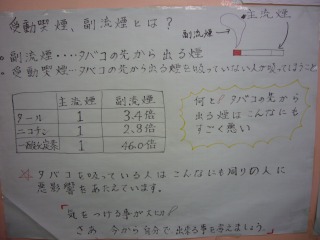 受動喫煙、副流煙とは？
主流煙
副流煙
副流煙・・・・タバコの先から出る煙
・受動喫煙…タバコの先から出る煙を吸っていない人が吸ってしまうこと
主流煙 副流煙
タール 1 3.4倍
ニコチン 1 2.8倍
一酸化炭素 1 46.0倍
何と!タバコの先から
出る煙はこんなにも
すごく悪い
☆ タバコを吸っている人はこんなにも周りの人に
悪影響をあたえています。
気をつける事が大切!
さあ 今から自分で出来る事を考えましょう